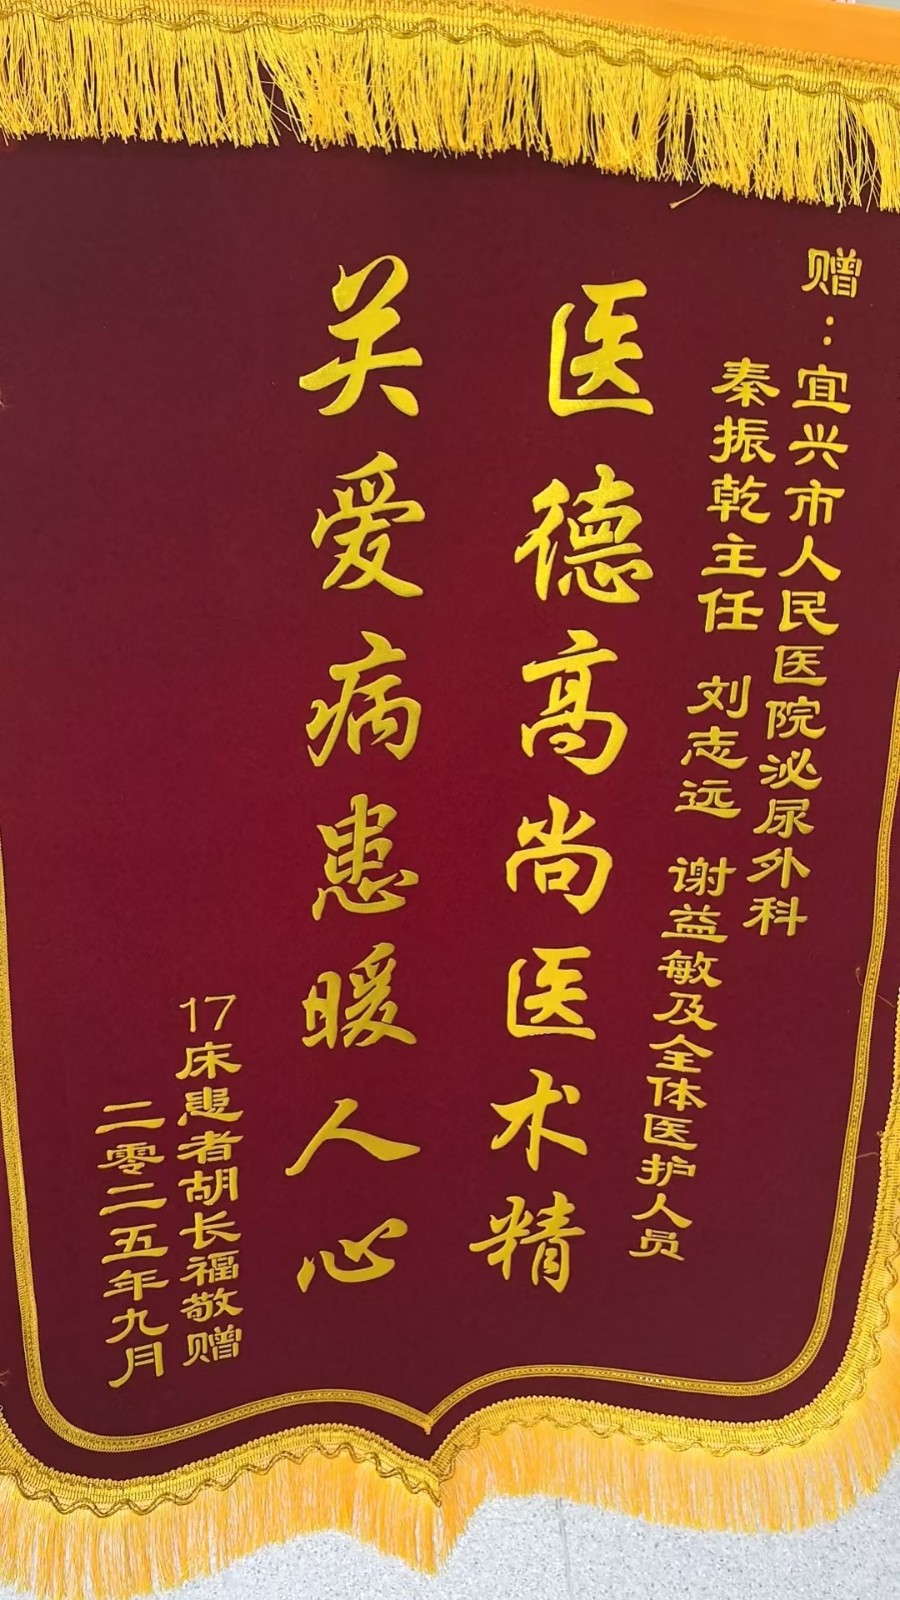 赠：宜兴市人民医院泌尿外科
秦振乾主任 刘志远 谢益敏及全体医护人员
医德高尚医术精
关爱病患暖人心
17床患者胡长福敬赠
二零二五年九月